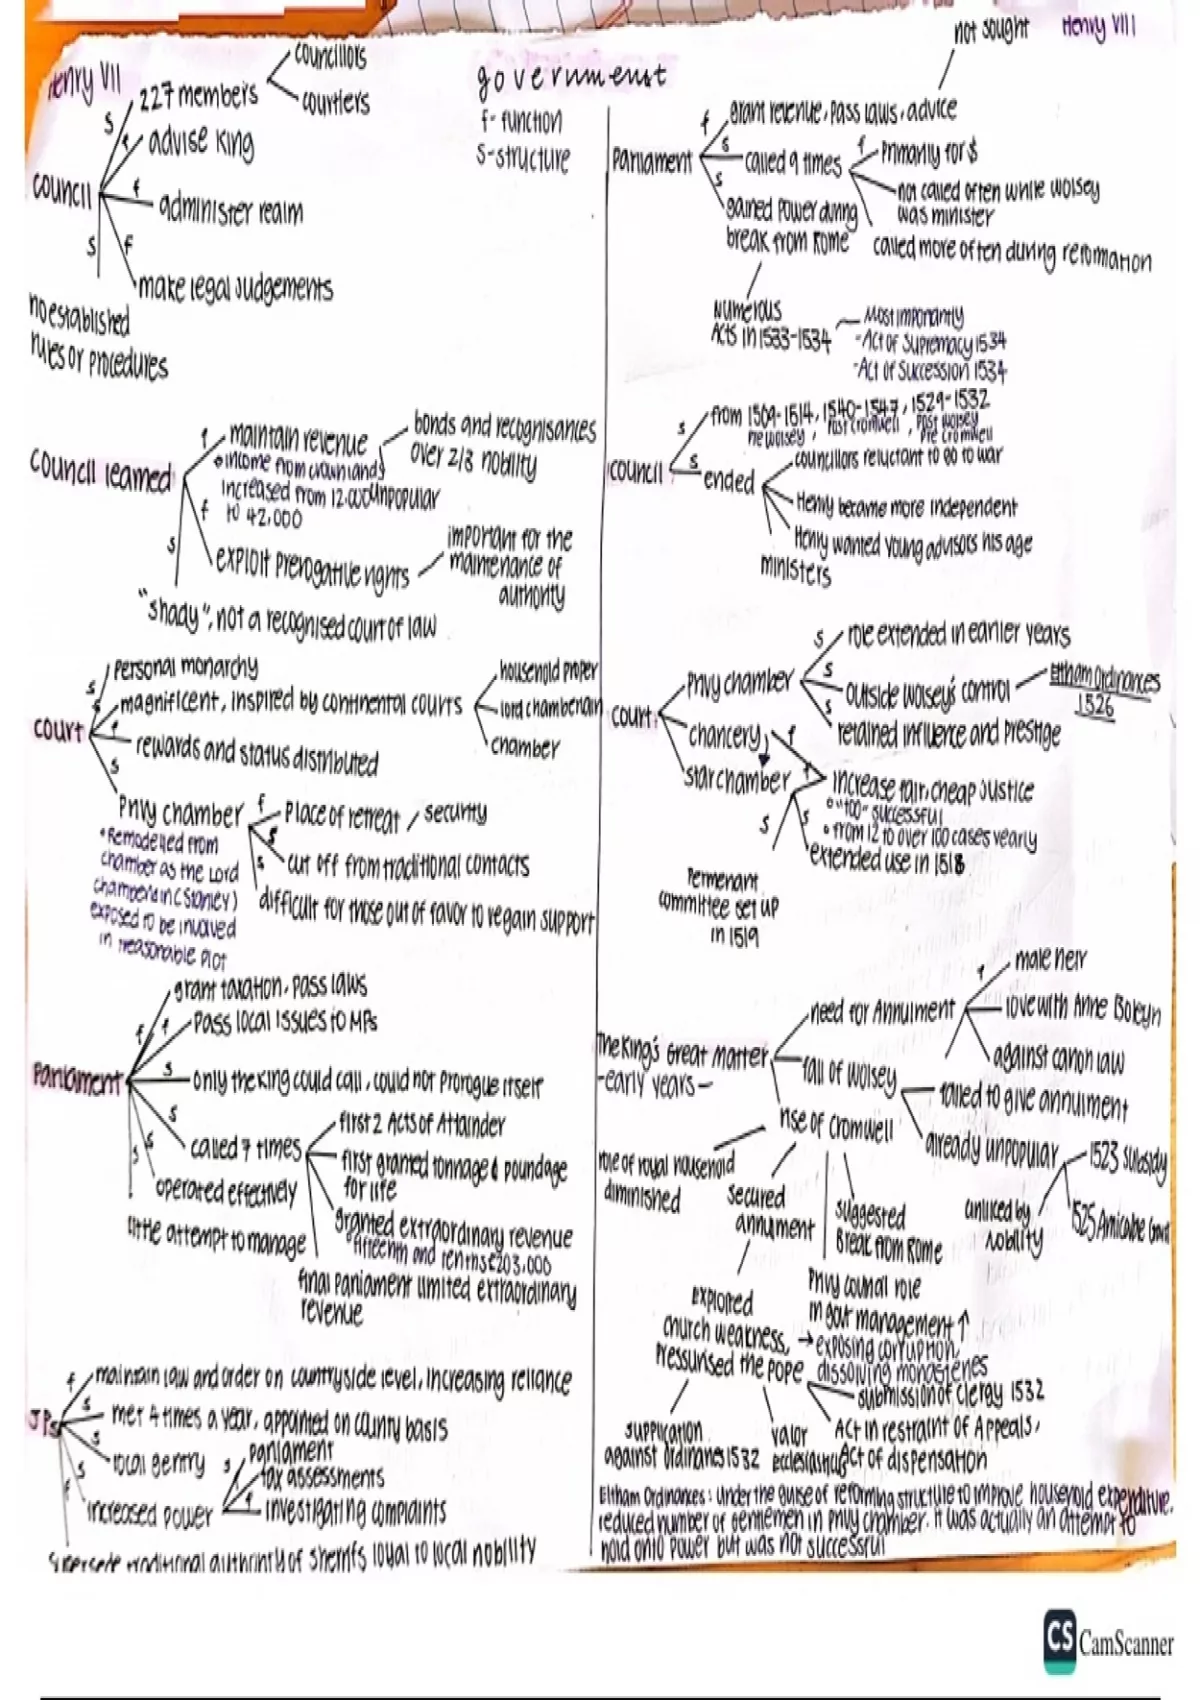 Henry VII
councillors
227 members
courtiers
s
f
advise King
council
f
administer realm
s
f
make legal judgements
no established
rules or procedures
government
f- function
s-structure
council learned
f
maintain revenue
bonds and recognisances
over 2/3 nobility
income from crown lands
increased from 12,000
unpopular
to 42,000
f
exploit prerogative rights
important for the
maintenance of
authority
s
"shady", not a recognised court of law
court
s
personal monarchy
s
magnificent, inspired by continental courts
household proper
lord chamberlain
chamber
f
rewards and status distributed
s
Privy chamber
f
Place of retreat / security
s
cut off from traditional contacts
s
difficult for those out of favor to regain support
Remodelled from
chamber as the Lord
chamberlain (Stanley)
exposed to be involved
in treasonable plot
Parliament
f
grant taxation, pass laws
f
pass local issues to MPs
s
only the king could call, could not prorogue itself
s
called 7 times
first 2 Acts of Attainder
first granted tonnage & poundage
for life
granted extraordinary revenue
fifteenth and tenths £203,000
final parliament limited extraordinary
revenue
s
operated effectively
s
little attempt to manage
JPs
f
maintain law and order on countryside level, increasing reliance
s
met 4 times a year, appointed on county basis
s
local gentry
s
increased power
s
parliament
tax assessments
f
investigating complaints
f
supersede traditional authority of sheriffs loyal to local nobility
Henry VIII
not sought
Parliament
f
grant revenue, pass laws, advice
s
called 9 times
f
Primarily for $
not called often while Wolsey
was minister
called more often during reformation
s
gained power during
break from Rome
Numerous
Acts in 1533-1534
Most importantly
-Act of Supremacy 1534
-Act of Succession 1534
council
s
from 1509-1514, 1540-1547, 1529-1532
Pre wolsey, Post Cromwell, Post wolsey
Pre Cromwell
s
ended
councillors reluctant to go to war
Henry became more independent
Henry wanted young advisors his age
ministers
court
Privy chamber
s
role extended in earlier years
s
outside Wolsey's control
Eltham Ordinances
1526
s
retained influence and prestige
chancery,
f
star chamber
f
increase fair, cheap justice
"too" successful
from 12 to over 100 cases yearly
s
extended use in 1518
s
Permenant
committee set up
in 1519
The King's Great Matter
-early years-
need for Annulment
f
male heir
love with Anne Boleyn
against canon law
fall of Wolsey
failed to give annulment
already unpopular
1523 subsidy
1525 Amicable Grant
unliked by
nobility
rise of Cromwell
role of royal household
diminished
secured
annulment
suggested
Break from Rome
Privy council role
in govt management ↑
exploited
church weakness,
pressurised the pope
→ exposing corruption,
dissolving monasteries
submission of clergy 1532
Act in restraint of Appeals,
Act of dispensation
valor
ecclesiasticus
supplication
against ordinaries 1532
Eltham Ordinances: Under the guise of reforming structure to improve household expenditure,
reduced number of gentlemen in Privy chamber. It was actually an attempt to
hold onto power but was not successful
CS CamScanner